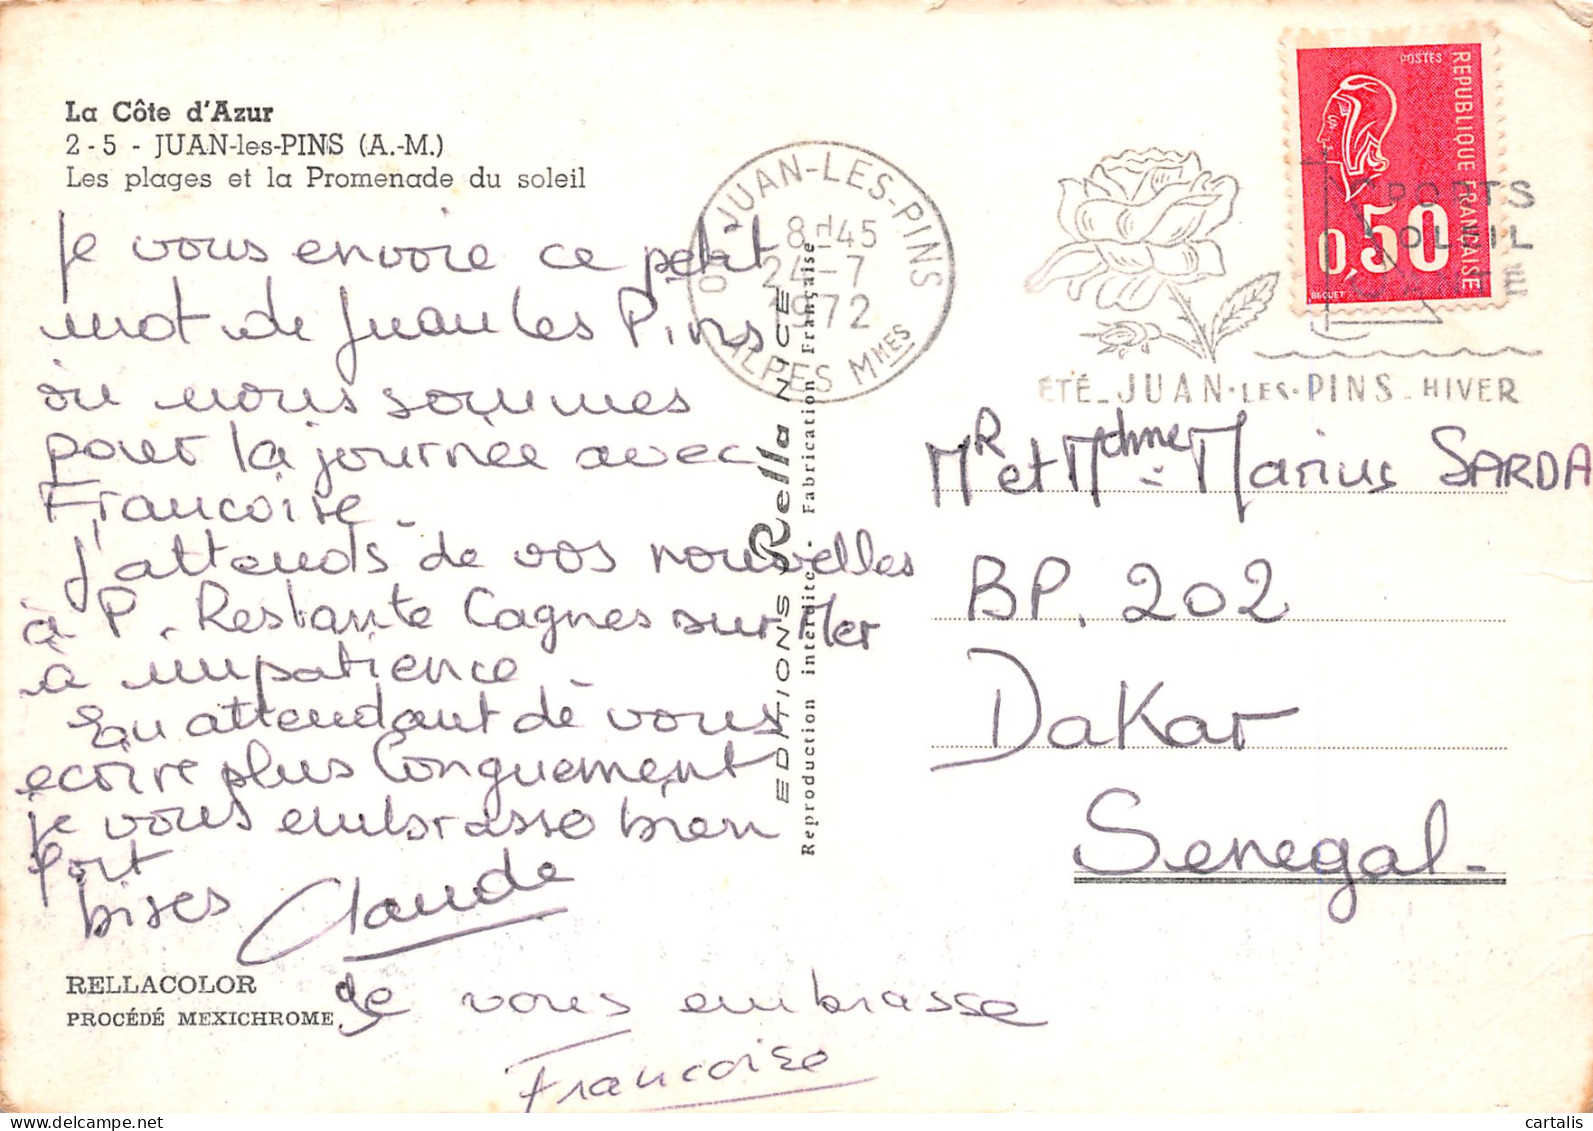 La Côte d'Azur
2-5 - JUAN-les-PINS (A.-M.)
Les plages et la Promenade du soleil
Je vous envoie ce petit
mot de Juan les Pins
où nous sommes
pour la journée avec
Francoise.
J'attends de vos nouvelles
à P. Restante Cagnes sur Mer
à impatience.
En attendant de vous
ecrire plus longuement
je vous embrasse bien
fort
bises Claude
Je vous embrasse
Francoise
RELLACOLOR
PROCÉDÉ MEXICHROME
EDITIONS Rella NICE
Reproduction interdite - Fabrication Française
JUAN-LES-PINS
8H45
24-7
1972
ALPES MMES
ÉTÉ - JUAN·LES·PINS - HIVER
SPORTS
SOLEIL
SANTÉ
POSTES
REPUBLIQUE FRANÇAISE
0,50
BEQUET
Mr et Mdme Marius SARDA
BP. 202
Dakar
Senegal-
cartalis